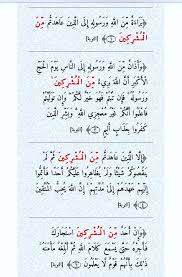 ﴿بَرَاءَةٌ مِّنَ اللَّهِ وَرَسُولِهِ إِلَى الَّذِينَ عَاهَدتُّم مِّنَ
الْمُشْرِكِينَ ﴿١﴾﴾ [التوبة]
﴿وَأَذَانٌ مِّنَ اللَّهِ وَرَسُولِهِ إِلَى النَّاسِ يَوْمَ الْحَجِّ
الْأَكْبَرِ أَنَّ اللَّهَ بَرِيءٌ مِّنَ الْمُشْرِكِينَ
وَرَسُولُهُ فَإِن تُبْتُمْ فَهُوَ خَيْرٌ لَّكُمْ وَإِن تَوَلَّيْتُمْ
فَاعْلَمُوا أَنَّكُمْ غَيْرُ مُعْجِزِي اللَّهِ وَبَشِّرِ الَّذِينَ
كَفَرُوا بِعَذَابٍ أَلِيمٍ ﴿٣﴾﴾ [التوبة]
﴿إِلَّا الَّذِينَ عَاهَدتُّم مِّنَ الْمُشْرِكِينَ ثُمَّ لَمْ
يَنقُصُوكُمْ شَيْئًا وَلَمْ يُظَاهِرُوا عَلَيْكُمْ أَحَدًا فَأَتِمُّوا
إِلَيْهِمْ عَهْدَهُمْ إِلَى مُدَّتِهِمْ إِنَّ اللَّهَ يُحِبُّ الْمُتَّقِينَ
﴿٤﴾﴾ [التوبة]
﴿وَإِنْ أَحَدٌ مِّنَ الْمُشْرِكِينَ اسْتَجَارَكَ
فَأَجِرْهُ حَتَّى يَسْمَعَ كَلَامَ اللَّهِ ثُمَّ أَبْلِغْهُ مَأْمَنَهُ
ذَلِكَ بِأَنَّهُمْ قَوْمٌ لَّا يَعْلَمُونَ ﴿٦﴾﴾ [التوبة]